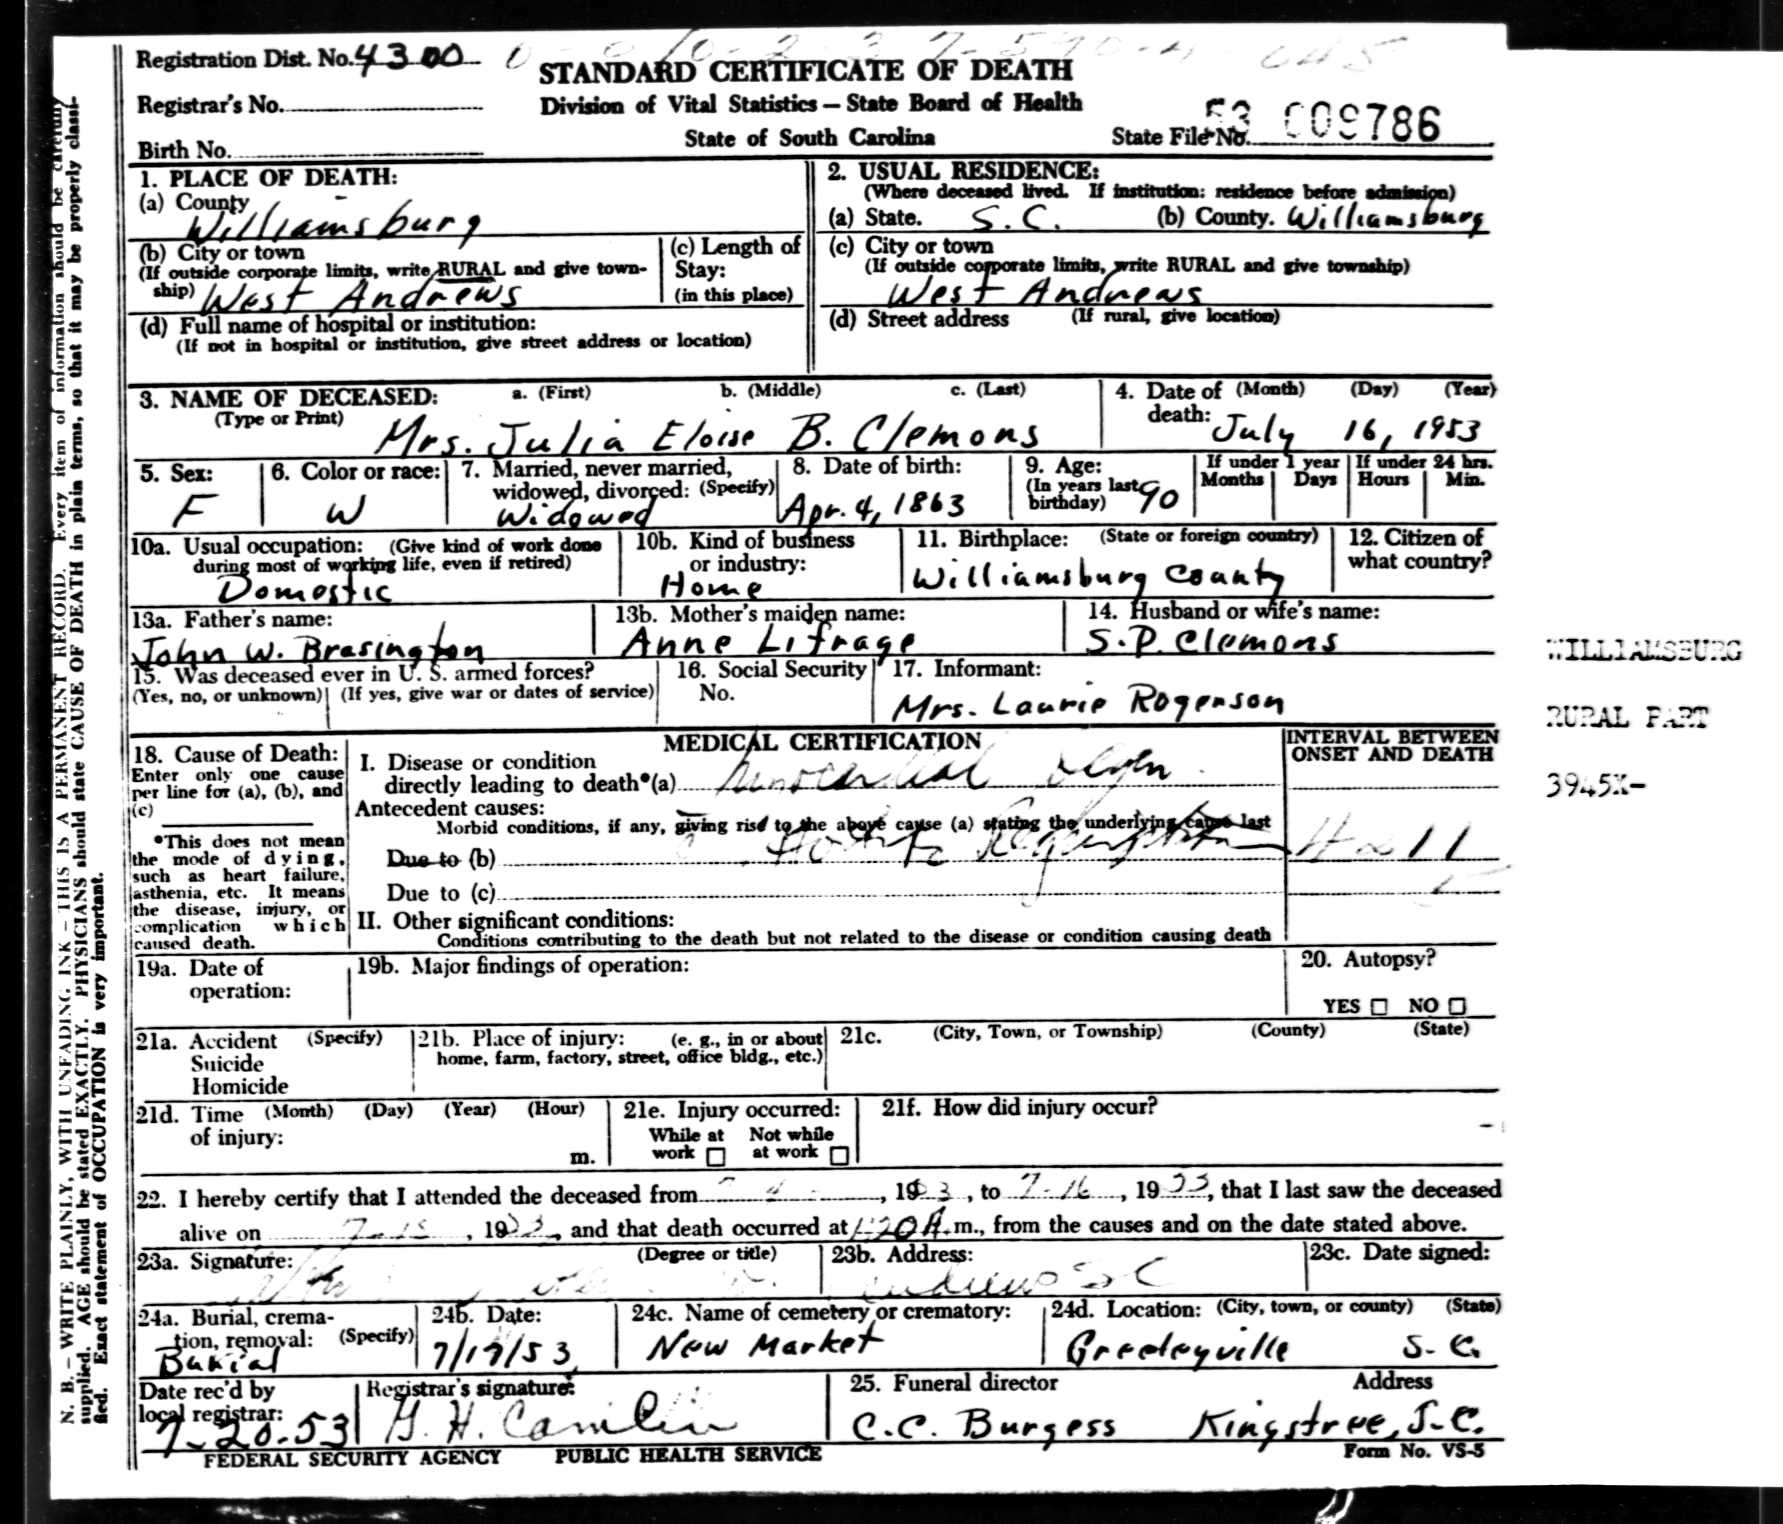 Registration Dist. No. 4300
STANDARD CERTIFICATE OF DEATH
Registrar's No.
Division of Vital Statistics – State Board of Health
53 009786
State of South Carolina
State File No.
Birth No.
1. PLACE OF DEATH:
(a) County
Williamsburg
(b) City or town
(If outside corporate limits, write RURAL and give town-
ship) West Andrews
(c) Length of
Stay:
(in this place)
(d) Full name of hospital or institution:
(If not in hospital or institution, give street address or location)
2. USUAL RESIDENCE:
(Where deceased lived. If institution: residence before admission)
(a) State. S.C. (b) County. Williamsburg
(c) City or town
(If outside corporate limits, write RURAL and give township)
West Andrews
(d) Street address (If rural, give location)
3. NAME OF DECEASED: a. (First) b. (Middle) c. (Last)
(Type or Print)
Mrs. Julia Eloise B. Clemons
4. Date of (Month) (Day) (Year)
death: July 16, 1953
5. Sex:
F
6. Color or race:
W
7. Married, never married,
widowed, divorced: (Specify)
Widowed
8. Date of birth:
Apr. 4, 1863
9. Age:
(In years last
birthday) 90
If under 1 year
Months Days
If under 24 hrs.
Hours Min.
10a. Usual occupation: (Give kind of work done
during most of working life, even if retired)
Domestic
10b. Kind of business
or industry:
Home
11. Birthplace: (State or foreign country)
Williamsburg County
12. Citizen of
what country?
13a. Father's name:
John W. Brasington
13b. Mother's maiden name:
Anne Lifrage
14. Husband or wife's name:
S.P. Clemons
15. Was deceased ever in U. S. armed forces?
(Yes, no, or unknown) (If yes, give war or dates of service)
16. Social Security
No.
17. Informant:
Mrs. Laurie Rogerson
WILLIAMSBURG
RURAL PART
3945X-
18. Cause of Death:
Enter only one cause
per line for (a), (b), and
(c)
*This does not mean
the mode of dying,
such as heart failure,
asthenia, etc. It means
the disease, injury, or
complication which
caused death.
MEDICAL CERTIFICATION
I. Disease or condition
directly leading to death*(a)
Antecedent causes:
Morbid conditions, if any, giving rise to the above cause (a) stating the underlying cause last
Due to (b)
Due to (c)
II. Other significant conditions:
Conditions contributing to the death but not related to the disease or condition causing death
INTERVAL BETWEEN
ONSET AND DEATH
19a. Date of
operation:
19b. Major findings of operation:
20. Autopsy?
YES NO
21a. Accident (Specify)
Suicide
Homicide
21b. Place of injury: (e. g., in or about
home, farm, factory, street, office bldg., etc.)
21c. (City, Town, or Township) (County) (State)
21d. Time (Month) (Day) (Year) (Hour)
of injury:
m.
21e. Injury occurred:
While at Not while
work at work
21f. How did injury occur?
22. I hereby certify that I attended the deceased from , 1953, to 7-16, 1953, that I last saw the deceased
alive on 7-15, 1953, and that death occurred at 1:20 A.m., from the causes and on the date stated above.
23a. Signature: (Degree or title)
23b. Address:
Andrews SC
23c. Date signed:
24a. Burial, crema-
tion, removal: (Specify)
Burial
24b. Date:
7/17/53
24c. Name of cemetery or crematory:
New Market
24d. Location: (City, town, or county) (State)
Greeleyville S. C.
Date rec'd by
local registrar:
7-20-53
Registrar's signature:
G. H. Camlin
25. Funeral director Address
C.C. Burgess Kingstree, S.C.
FEDERAL SECURITY AGENCY PUBLIC HEALTH SERVICE
Form No. VS-5
N. B. – WRITE PLAINLY, WITH UNFADING INK – THIS IS A PERMANENT RECORD. Every item of information should be carefully
supplied. AGE should be stated EXACTLY. PHYSICIANS should state CAUSE OF DEATH in plain terms, so that it may be properly classi-
fied. Exact statement of OCCUPATION is very important.